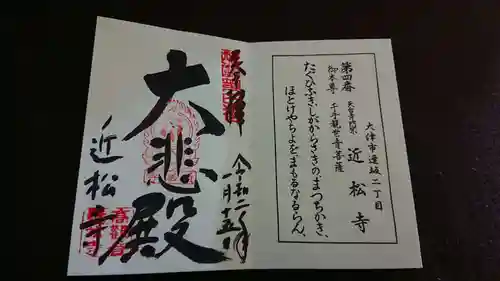 大津市逢坂二丁目
第四番
天台寺門宗
近松寺
御本尊
千手観世音菩薩
たぐひなきしがからさきのまつちかき、
ほとけやちよをまもるなるらん、
奉拝
令和二年
一月十五日
大悲殿
近松寺